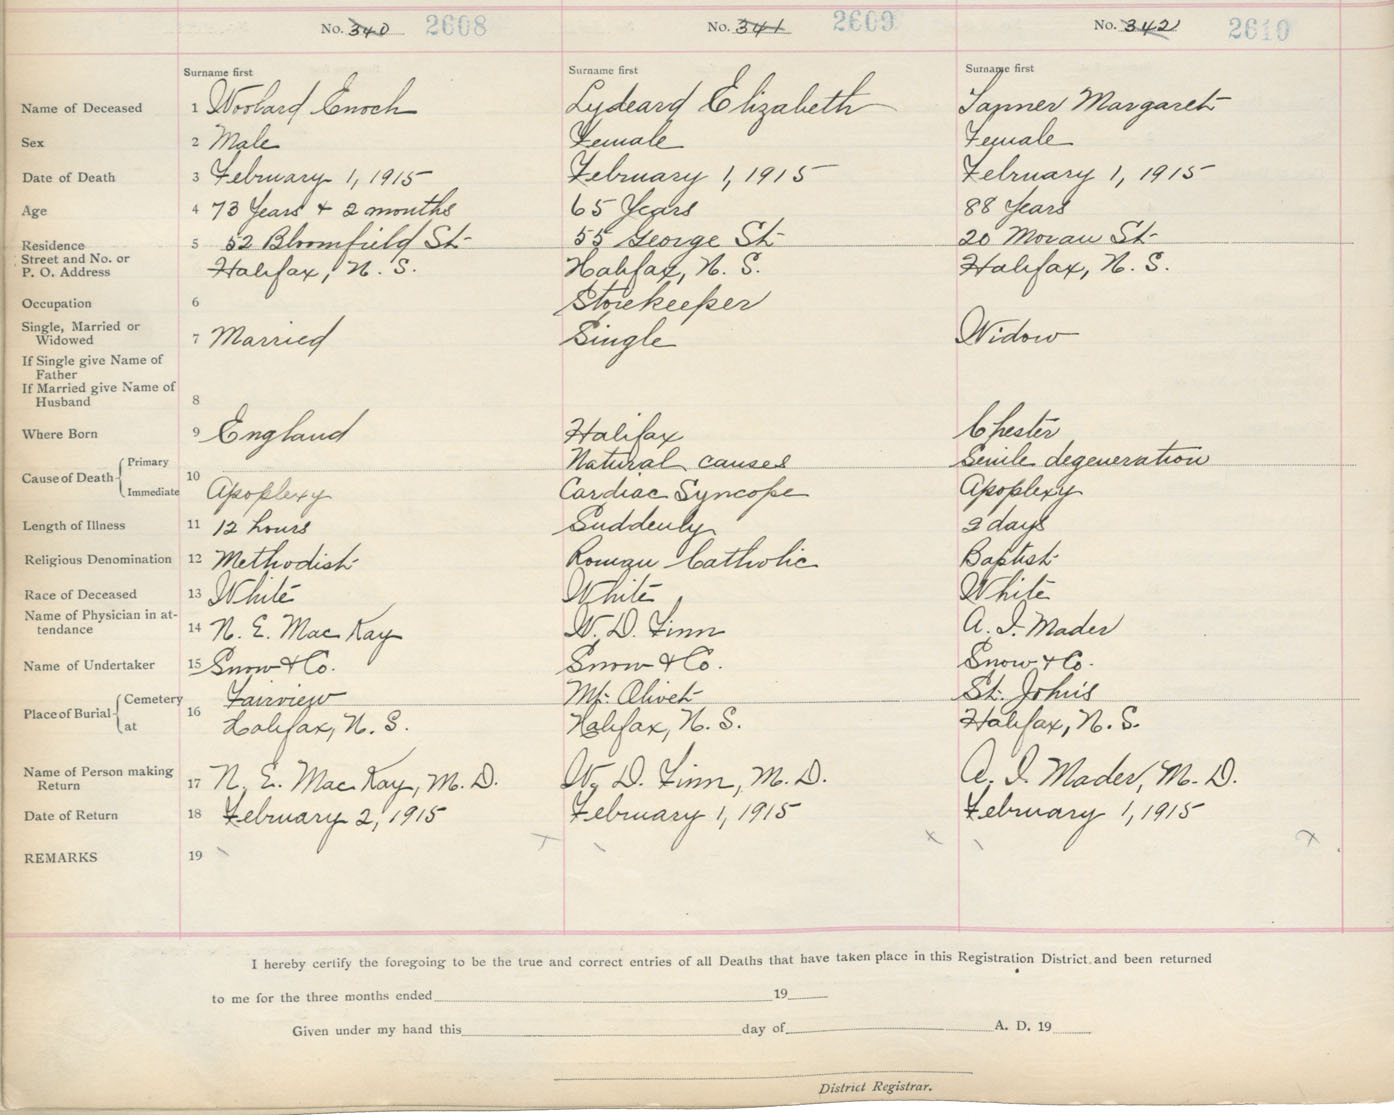 No. 340 2608 No. 341 2609 No. 342 2610
Surname first Surname first Surname first
Name of Deceased 1 Woolard Enoch Lydeard Elizabeth Tanner Margaret
Sex 2 Male Female Female
Date of Death 3 February 1, 1915 February 1, 1915 February 1, 1915
Age 4 73 Years + 2 months 65 Years 88 Years
Residence 5 52 Bloomfield St. 55 George St. 20 Moran St.
Street and No. or
P. O. Address Halifax, N. S. Halifax, N. S. Halifax, N. S.
Occupation 6 Storekeeper
Single, Married or
Widowed 7 Married Single Widow
If Single give Name of
Father
If Married give Name of
Husband 8
Where Born 9 England Halifax Chester
Cause of Death Primary 10 Natural causes Senile degeneration
Immediate Apoplexy Cardiac Syncope Apoplexy
Length of Illness 11 12 hours Suddenly 2 days
Religious Denomination 12 Methodist Roman Catholic Baptist
Race of Deceased 13 White White White
Name of Physician in at-
tendance 14 N. E. MacKay W. D. Finn A. I. Mader
Name of Undertaker 15 Snow & Co. Snow & Co. Snow & Co.
Place of Burial Cemetery 16 Fairview Mt. Olivet St. John's
at Halifax, N. S. Halifax, N. S. Halifax, N. S.
Name of Person making
Return 17 N. E. MacKay, M. D. W. D. Finn, M. D. A. I. Mader, M. D.
Date of Return 18 February 2, 1915 February 1, 1915 February 1, 1915
REMARKS 19
I hereby certify the foregoing to be the true and correct entries of all Deaths that have taken place in this Registration District and been returned
to me for the three months ended 19
Given under my hand this day of A. D. 19
District Registrar.